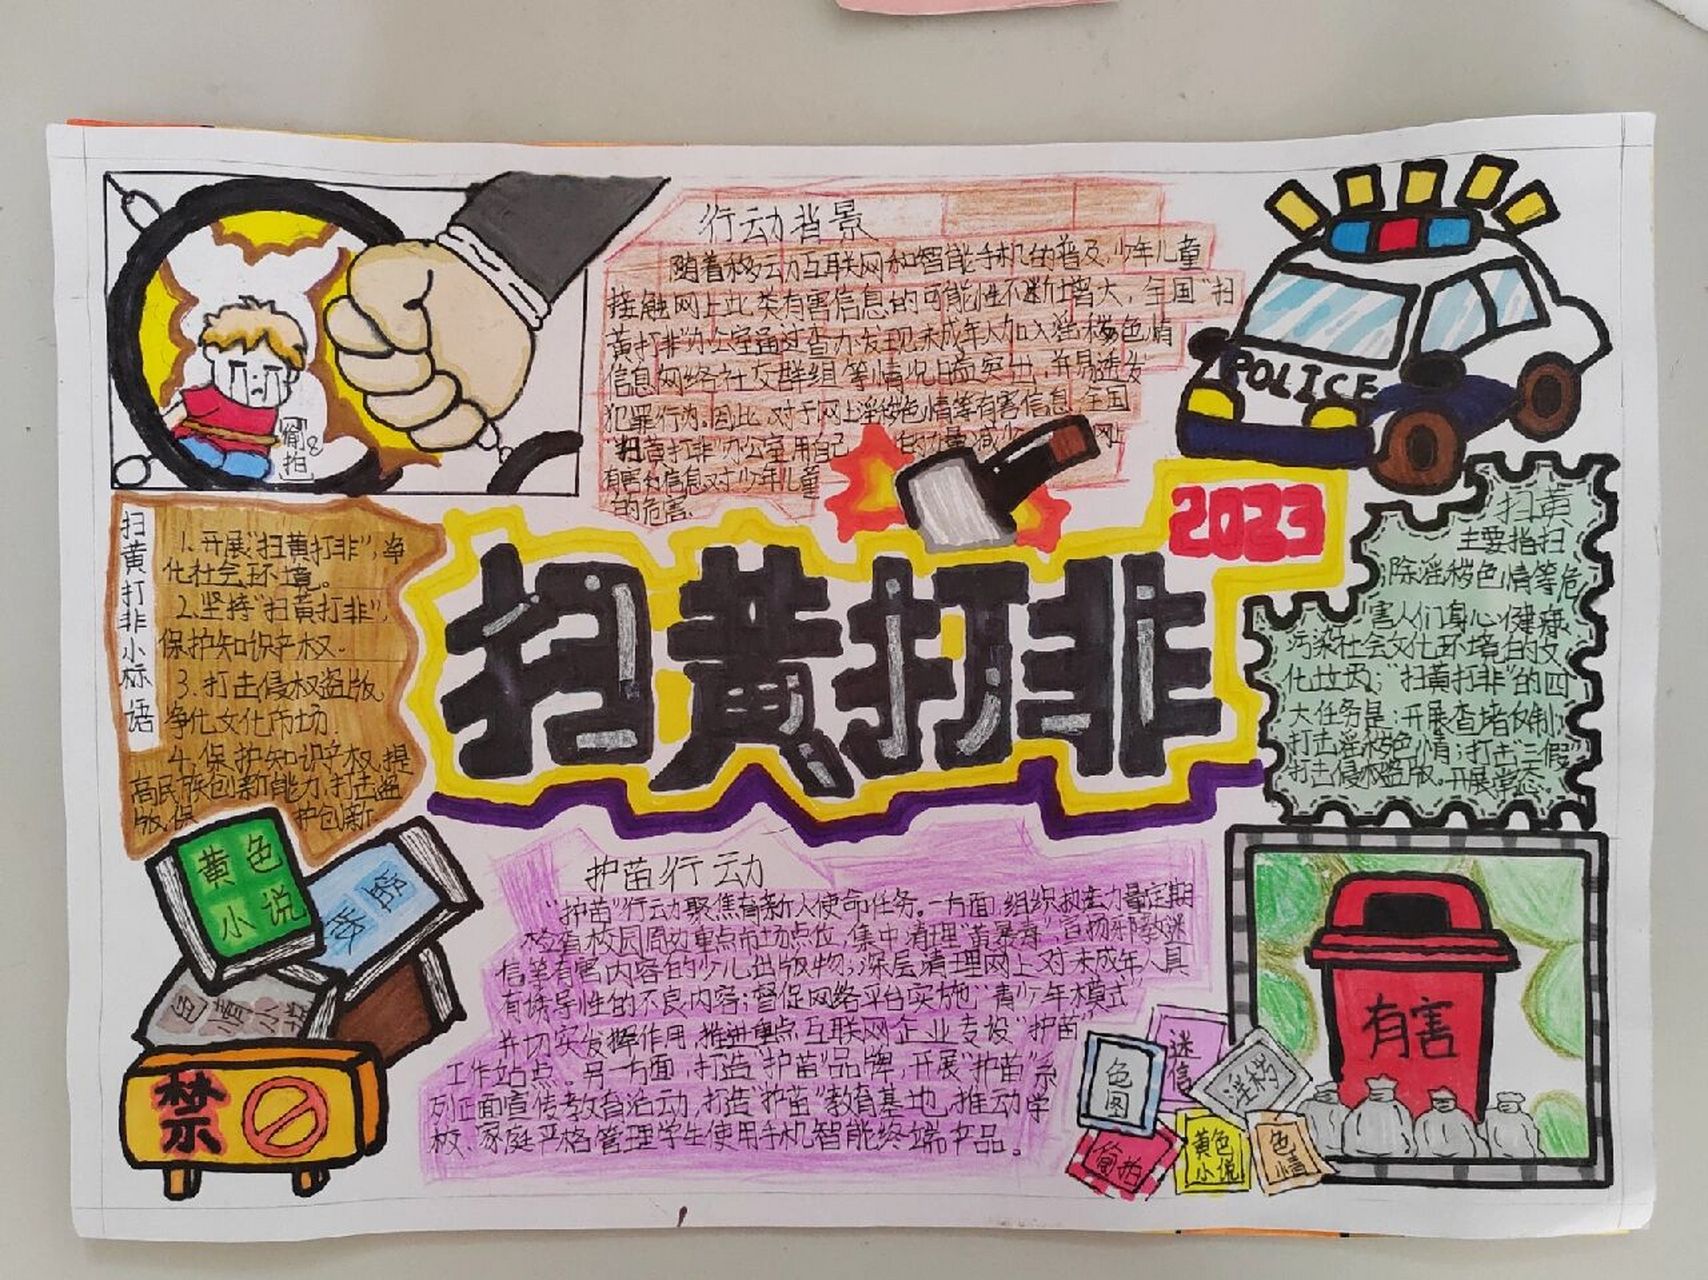 行动背景
随着移动互联网和智能手机的普及,少年儿童
接触网上此类有害信息的可能性不断增大,全国"扫
黄打非"办公室通过查办发现未成年人加入淫秽色情
信息网络社交群组等情况日益突出,并易诱发
犯罪行为。因此,对于网上淫秽色情等有害信息,全国
"扫黄打非"办公室用自己
有害信息对少年儿童
的危害。
偷拍
POLICE
2023
扫黄打非
扫黄打非小标语
1.开展"扫黄打非",净
化社会环境。
2.坚持"扫黄打非",
保护知识产权。
3.打击侵权盗版,
净化文化市场.
4.保护知识产权,提
高民族创新能力,打击盗
版,保护创新
扫黄
主要指扫
除淫秽色情等危
害人们身心健康、
污染社会文化环境的文
化垃圾;"扫黄打非"的四
大任务是:开展查堵
打击淫秽色情;打击"三假"
打击侵权盗版。开展常态
黄色
小说
盗版
色情小说
禁
护苗行动
"护苗"行动聚焦育新人使命任务。一方面,组织执法力量定期
检查校园周边重点市场点位,集中清理"黄暴毒",宣扬邪教迷
信等有害内容的少儿出版物;深层清理网上对未成年人具
有诱导性的不良内容;督促网络平台实施"青少年模式"
并切实发挥作用,推进重点互联网企业专设"护苗"
工作站点。另一方面,打造"护苗"品牌,开展"护苗"系
列正面宣传教育活动,打造"护苗"教育基地,推动学
校、家庭严格管理学生使用手机智能终端产品。
有害
色图
迷信
淫秽
偷拍
黄色
小说
色情